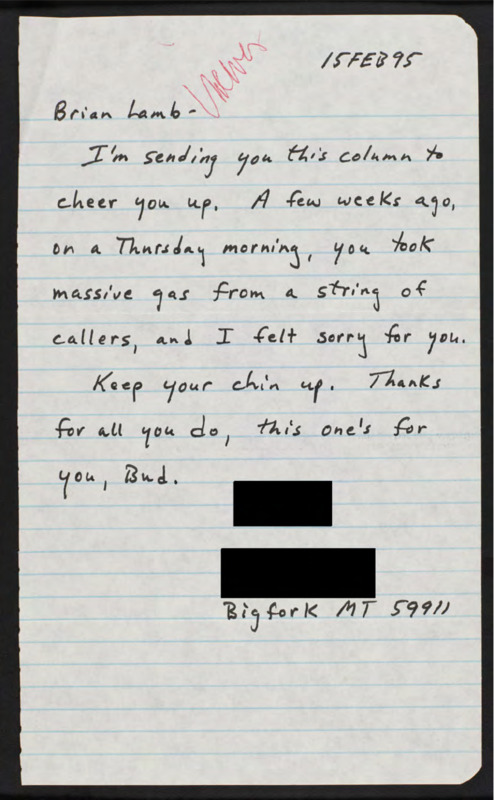 15FEB95
Viewer
Brian Lamb-
I'm sending you this column to
cheer you up. A few weeks ago,
on a Thursday morning, you took
massive gas from a string of
callers, and I felt sorry for you.
Keep your chin up. Thanks
for all you do, this one's for
you, Bud.
Bigfork MT 59911